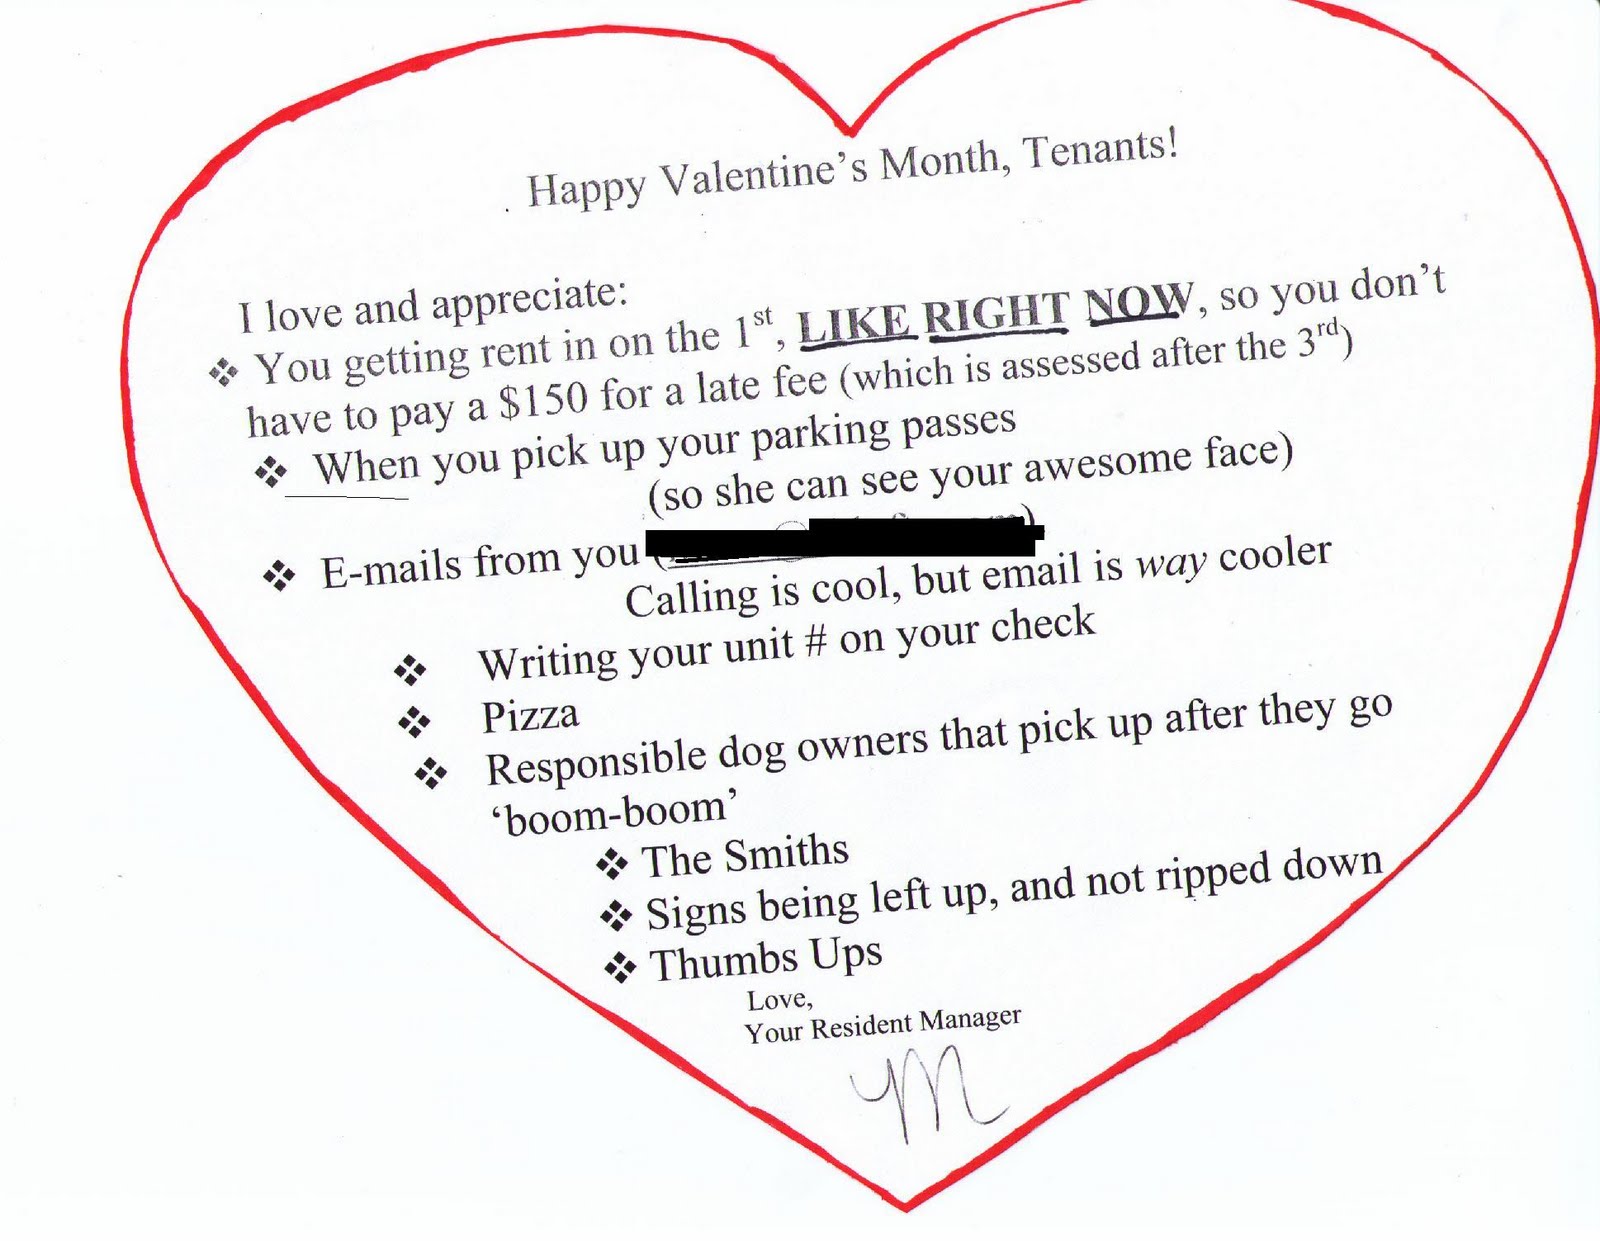 Happy Valentine's Month, Tenants!
I love and appreciate:
❖ You getting rent in on the 1st, LIKE RIGHT NOW, so you don't
have to pay a $150 for a late fee (which is assessed after the 3rd)
❖ When you pick up your parking passes
(so she can see your awesome face)
❖ E-mails from you (
Calling is cool, but email is way cooler
❖ Writing your unit # on your check
❖ Pizza
❖ Responsible dog owners that pick up after they go
‘boom-boom’
❖ The Smiths
❖ Signs being left up, and not ripped down
❖ Thumbs Ups
Love,
Your Resident Manager
M